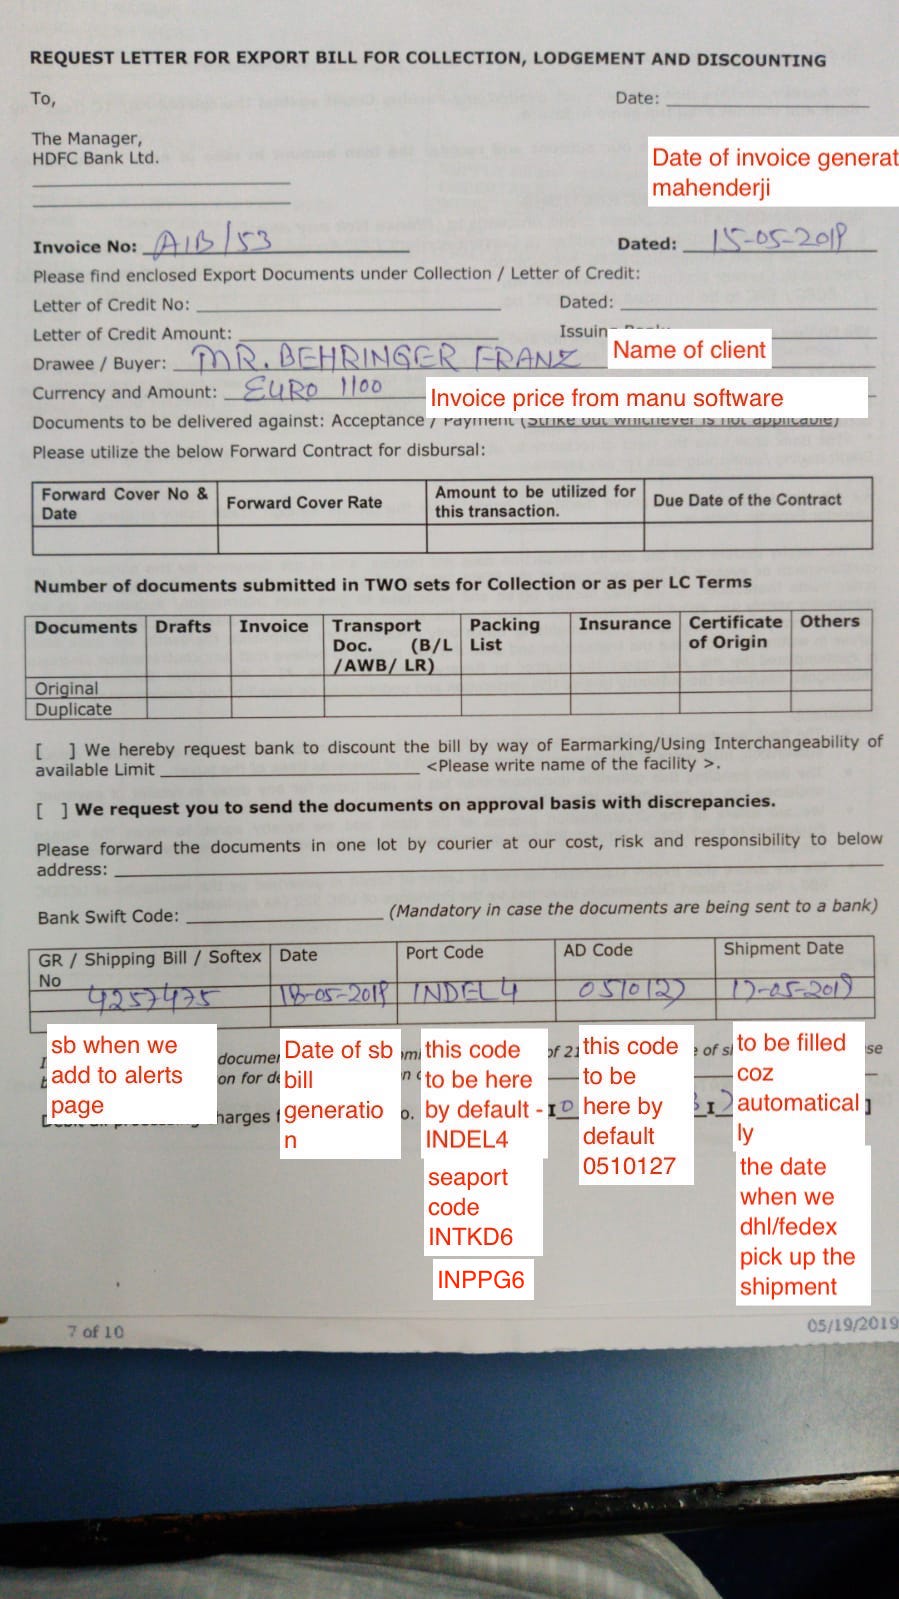 REQUEST LETTER FOR EXPORT BILL FOR COLLECTION, LODGEMENT AND DISCOUNTING
To, Date:
The Manager,
HDFC Bank Ltd.
Date of invoice generat
mahenderji
Invoice No: AIB/53 Dated: 15-05-2019
Please find enclosed Export Documents under Collection / Letter of Credit:
Letter of Credit No: Dated:
Letter of Credit Amount: Issuin
Drawee / Buyer: MR. BEHRINGER FRANZ Name of client
Currency and Amount: EURO 1100 Invoice price from manu software
Documents to be delivered against: Acceptance / Payment (Strike out whichever is not applicable)
Please utilize the below Forward Contract for disbursal:
Forward Cover No & Date Forward Cover Rate Amount to be utilized for this transaction. Due Date of the Contract
Number of documents submitted in TWO sets for Collection or as per LC Terms
Documents Drafts Invoice Transport Doc. (B/L /AWB/ LR) Packing List Insurance Certificate of Origin Others
Original
Duplicate
[ ] We hereby request bank to discount the bill by way of Earmarking/Using Interchangeability of
available Limit <Please write name of the facility >.
[ ] We request you to send the documents on approval basis with discrepancies.
Please forward the documents in one lot by courier at our cost, risk and responsibility to below
address:
Bank Swift Code: (Mandatory in case the documents are being sent to a bank)
GR / Shipping Bill / Softex No Date Port Code AD Code Shipment Date
4257475 18-05-2019 INDEL4 0510127 17-05-2019
sb when we
add to alerts
page
Date of sb
bill
generatio
n
this code
to be here
by default -
INDEL4
seaport
code
INTKD6
INPPG6
this code
to be
here by
default
0510127
to be filled
coz
automatical
ly
the date
when we
dhl/fedex
pick up the
shipment
docume of 21 e of s se
on for de
harges
7 of 10 05/19/2019